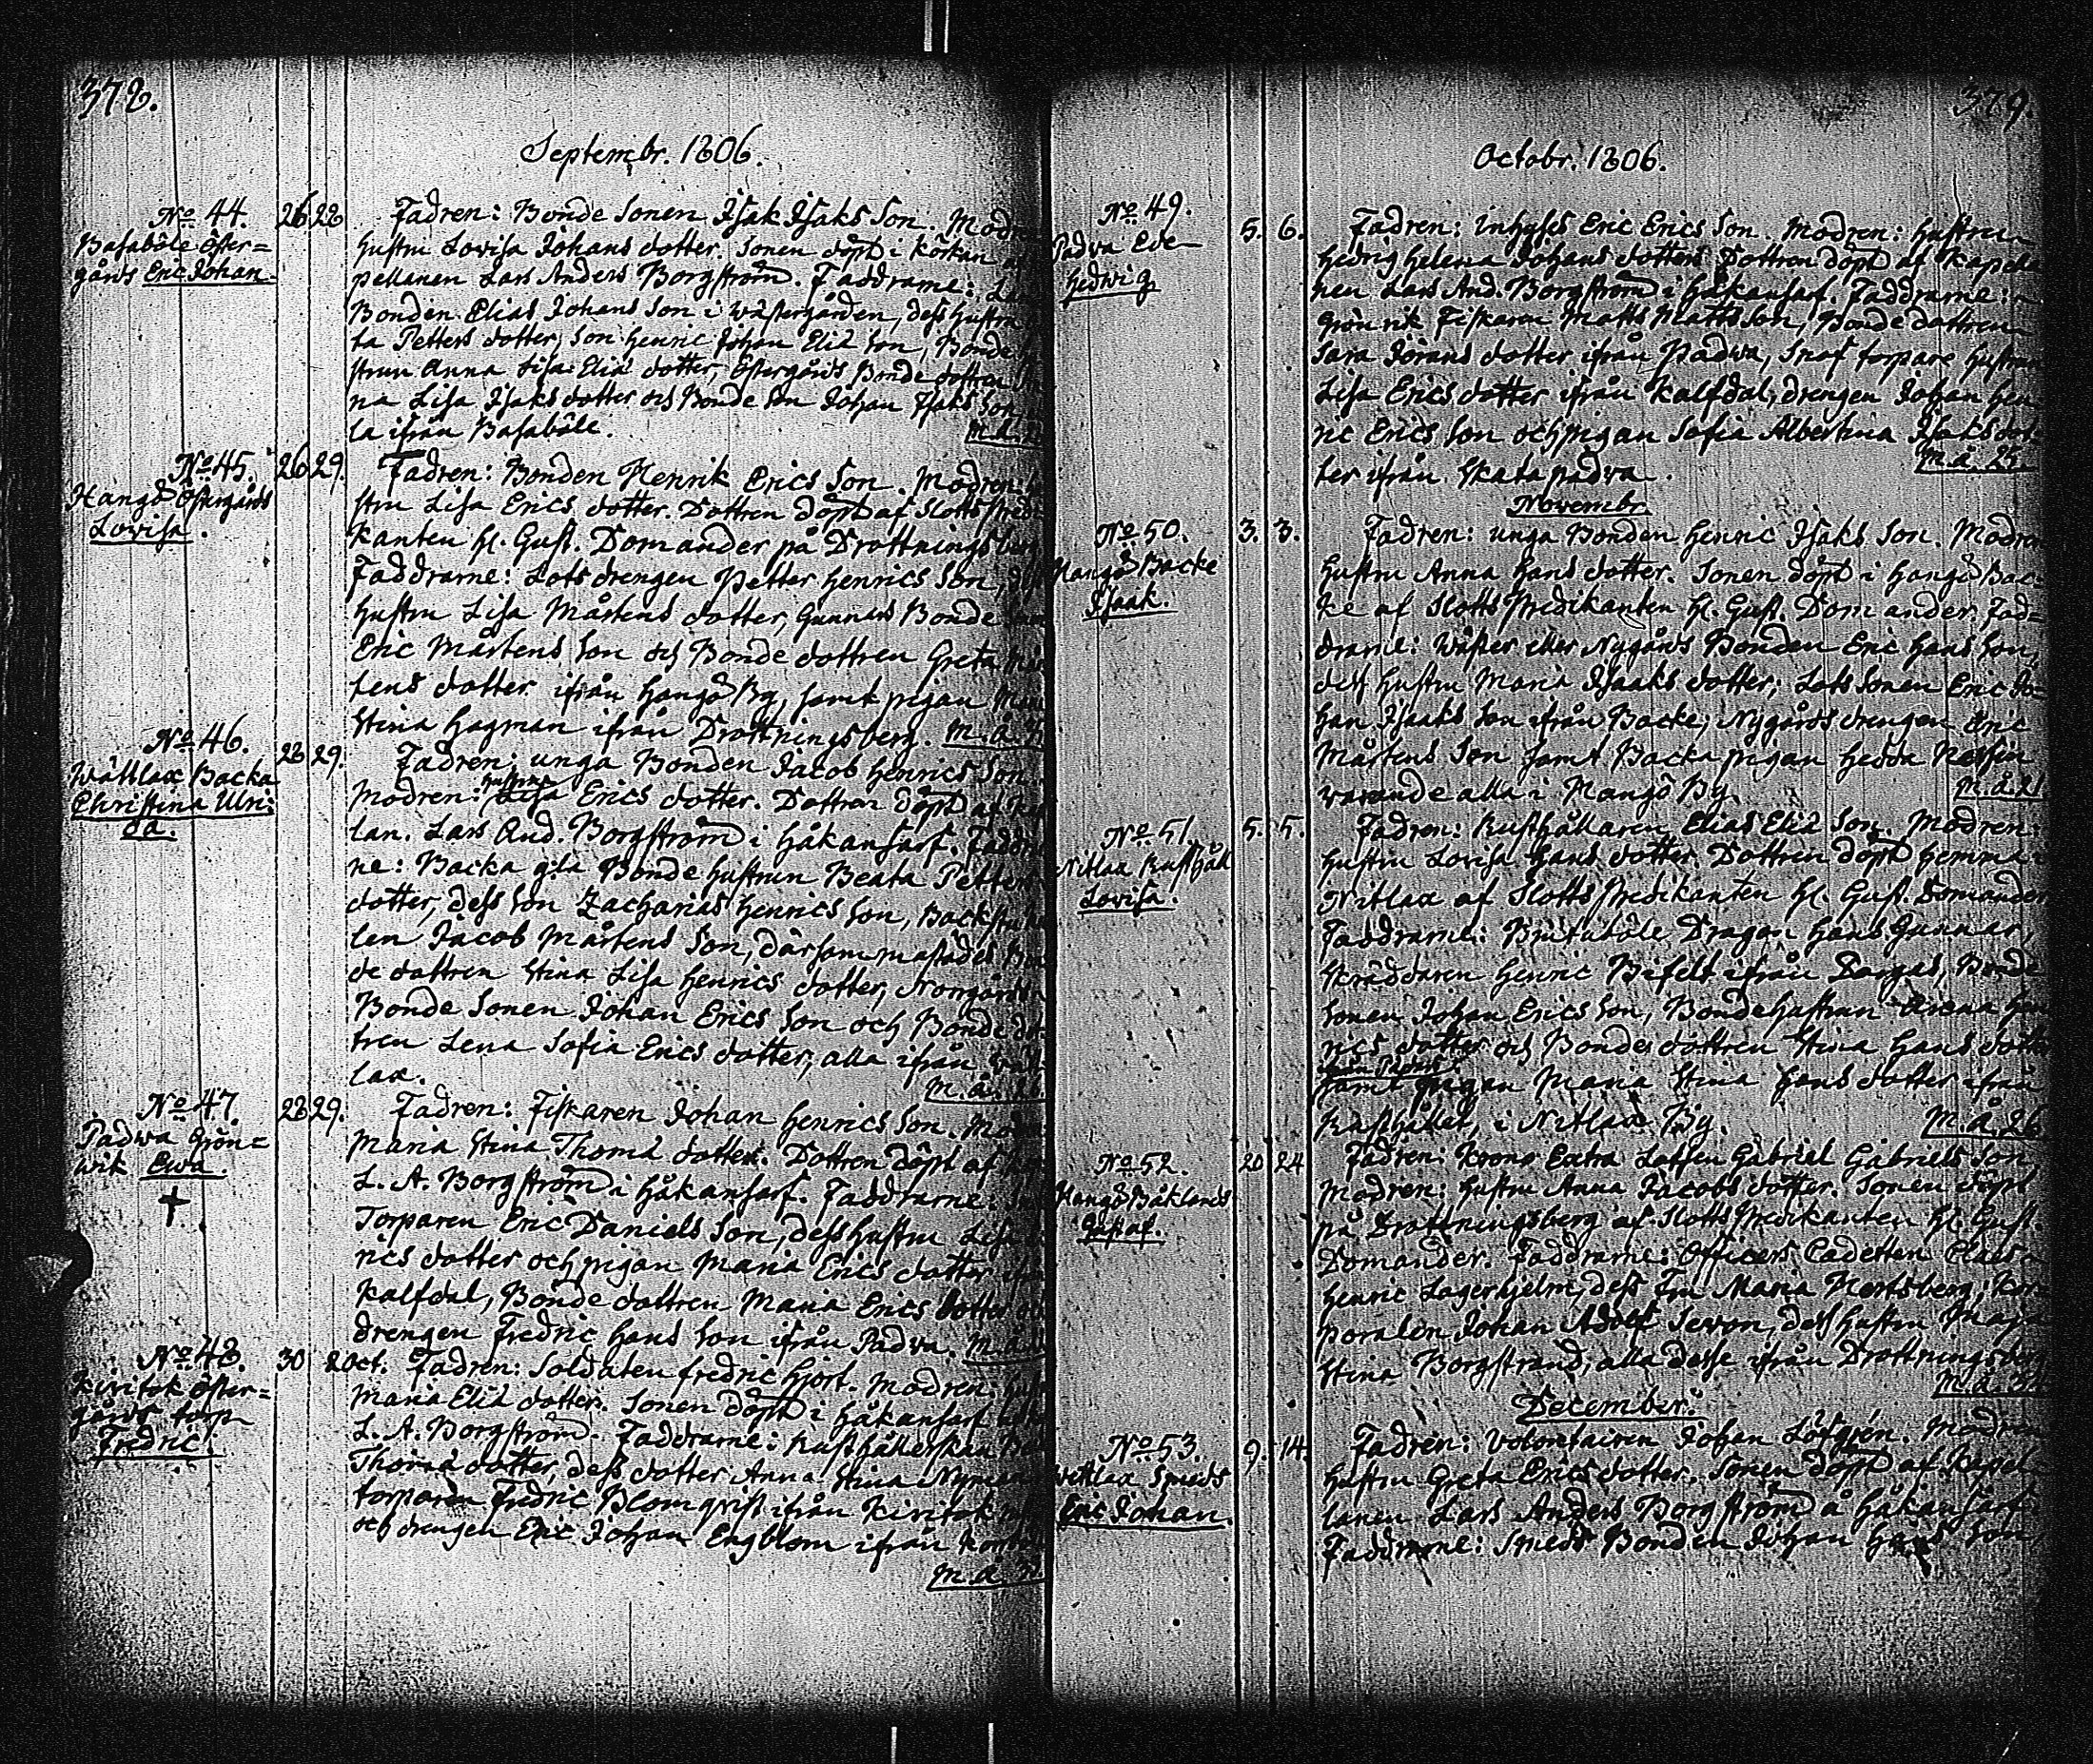 378.
Septembr. 1806.
No 44. 26 28
Basaböle Öster=
gårds Eric Johan.
Fadren: Bonde Sonen Isak Isaks Son. Modr
hustru Lovisa Johans dotter. Sonen döpt i körkan a
pellanen Lars Anders Borgström. Faddrarne:
Bonden Elias Johans Son i Wästergården, dess hustru
ta Petters dotter, Son Henric Johan Eliæ Son, Bonde
strun Anna Lisa Eliæ dotter, Östergårds Bonde dottren
na Lisa Isaks dotter och Bonde Son Johan Isaks Son
la ifrån Basaböle. M. å.
No 45. 26 29.
Hangö Östergårds
Lovisa.
Fadren: Bonden Henrik Erics Son. Modren:
stru Lisa Erics dotter. Dottren döpt af Slotts Predi
kanten H. Gust. Domander på Drottningsberg
Faddrarne: Lots drengen Petter Henrics Son,
hustru Lisa Mårtens dotter, Gunnars Bonde
Eric Mårtens Son och Bonde dottren Greta
tens dotter ifrån Hangö By, samt pigan
Stina Hagman ifrån Drottningsberg. M. å.
No 46. 28 29.
Wättlax Backa
Christina Ulri=
ca.
Fadren: unga Bonden Jacob Henrics Son
Modren: hustru Lisa Erics dotter. Dottren döpt af
lan. Lars And. Borgström i Håkansarf. Faddra
ne: Backa gla Bonde hustrun Beata Petters
dotter, dess Son Zacharias Henrics Son, Backstu
len Jacob Mårtens Son, därsammastädes
de dottren Stina Lisa Henrics dotter, Norrgårds
Bonde Sonen Johan Erics Son och Bonde dot
tren Lena Sofia Erics dotter, alla ifrån Wätt
lax. M. å.
No 47 28 29.
Padwa Grön=
wik Ewa.
Fadren: Fiskaren Johan Henrics Son. Mod
Maria Stina Thomæ dotter. Dottren döpt af
L. A. Borgström i Håkansarf. Faddrarne:
Torparen Eric Daniels Son, dess hustru Lisa
rics dotter och pigan Maria Erics dotter
Kalfdal, Bonde dottren Maria Erics dotter
drengen Fredric Hans Son ifrån Padva. M. å.
No 48. 30 2 Oct.
Kivitok Öster=
gårds torp
Fredric.
Fadren: Soldaten Fredric Hjort. Modren:
Maria Eliæ dotter. Sonen döpt i Håkansarf
L. A. Borgström. Faddrarne: Rusthållerskan
Thomæ dotter, dess dotter Anna Stina Nyman
torparen Fredric Blomqvist ifrån Kivitok
och drengen Eric Johan Engblom ifrån
M. å.
379.
Octobr. 1806.
No 49. 5. 6.
Padva Eva
Hedwig
Fadren: inhyses Eric Erics Son. Modren: hustru
Hedvig Helena Johans dotter. Dottren döpt af Kapella
nen Lars And. Borgström i Håkansarf. Faddrarne:
Grönvik Fiskaren Matts Matts Son, Bonde dottren
Sara Jörans dotter ifrån Padwa, torpare hustrun
Lisa Erics dotter ifrån Kalfdal, drengen Johan Hen
ric Erics Son och pigan Sofia Albertina Isaks dot
ter ifrån Skata padva. M. å. 25.
Novembr.
No 50. 3. 3.
Hangö Backe
Isaak.
Fadren: unga Bonden Henric Isaks Son. Modren
hustru Anna Hans dotter. Sonen döpt i Hangö Bac
ke af Slotts Predikanten H. Gust. Domander. Fad=
drarne: Wäster eller Nygårds Bonden Eric Hans Son,
dess hustru Maria Isaaks dotter; Lots Sonen Eric Jo=
han Isaaks Son ifrån Backe, Nygårds drengen Eric
Mårtens Son samt Backa pigan Hedda
varande alla i Hangö By. M. å. 21
No 51. 5. 5.
Nitlax Rusthåll
Lovisa.
Fadren: Rusthållaren Elias Eliæ Son. Modren:
hustru Lovisa Hans dotter. Dottren döpt hemma i
Nitlax af Slotts Predikanten H. Gust. Domander
Faddrarne: Dragon Hans Gunnar,
Skräddaren Henric ifrån Pargas, Bonde
Sonen Johan Erics Son, Bondehustrun Hen
rics dotter och Bonde dottren Stina Hans dotter
samt pigan Maria Stina Hans dotter ifrån
Rusthållet, i Nitlax By. M. å. 26
No 52. 20 24
Hangö Båklands
Gustaf.
Fadren: Krono Extra Lotsen Gabriel Gabriels Son
Modren: hustru Anna Jacobs dotter. Sonen döpt
på Drottningsberg af Slotts Predikanten H. Gust.
Domander. Faddrarne: Officers Cadetten Claes
Henric Lagerhjelm, dess Fru Maria Hertsberg, Kor
poralen Johan Adolf Sevon, dess hustru Maja
Stina Borgstrand, alla desse ifrån Drottningsberg
M. å.
December.
No 53. 9. 14.
Wettlax Smeds
Eric Johan.
Fadren: Volontairen Johan Löfgrén. Modren
hustru Greta Erics dotter. Sonen döpt af Kapel
lanen Lars Anders Borgström å Håkansarf
Faddrarne: Smeds Bonden Johan Hans Son,